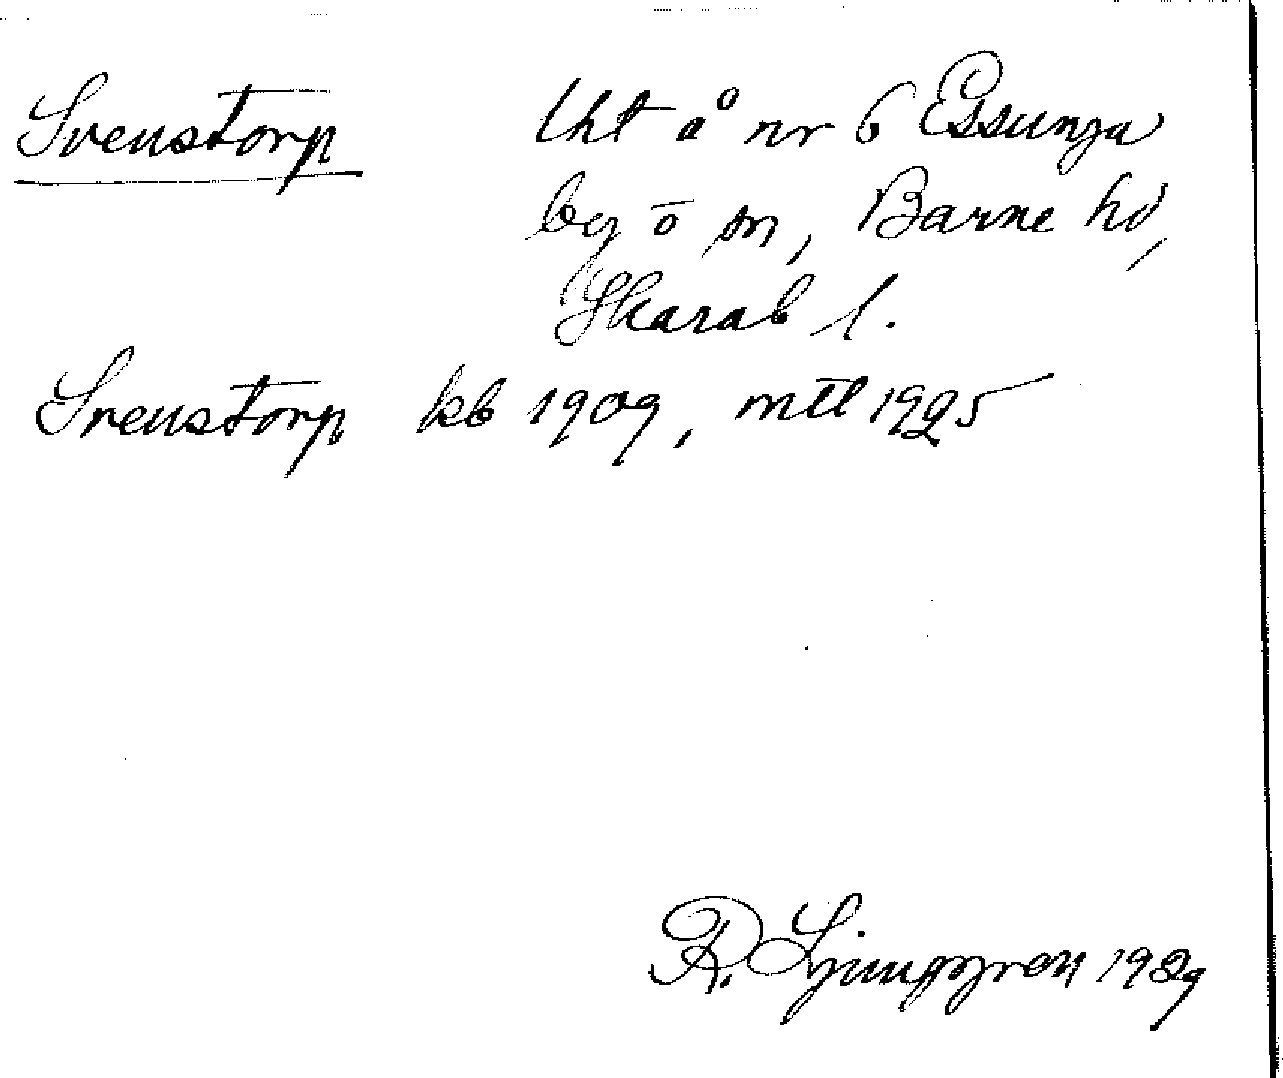 Svenstorp lht å nr 6 Essunga
by o sn, Barne hd,
Skarab l.
Svenstorp kb 1909, mtl 1925
R. Ljunggren 1929